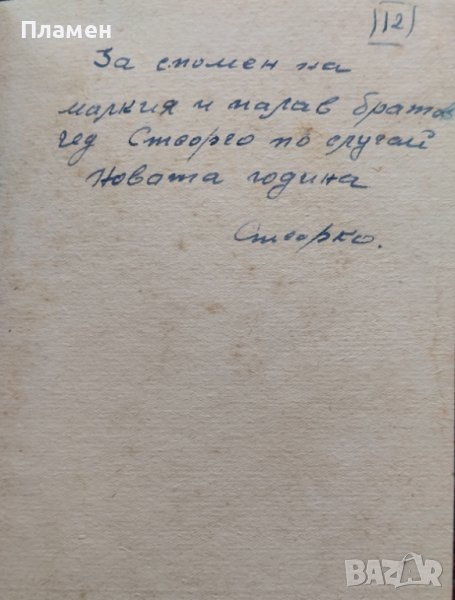 Пламен
(12)
За спомен на
малкия и палав братов
чед Стеорго по случай
Новата година
Стеорко.
BAZAR